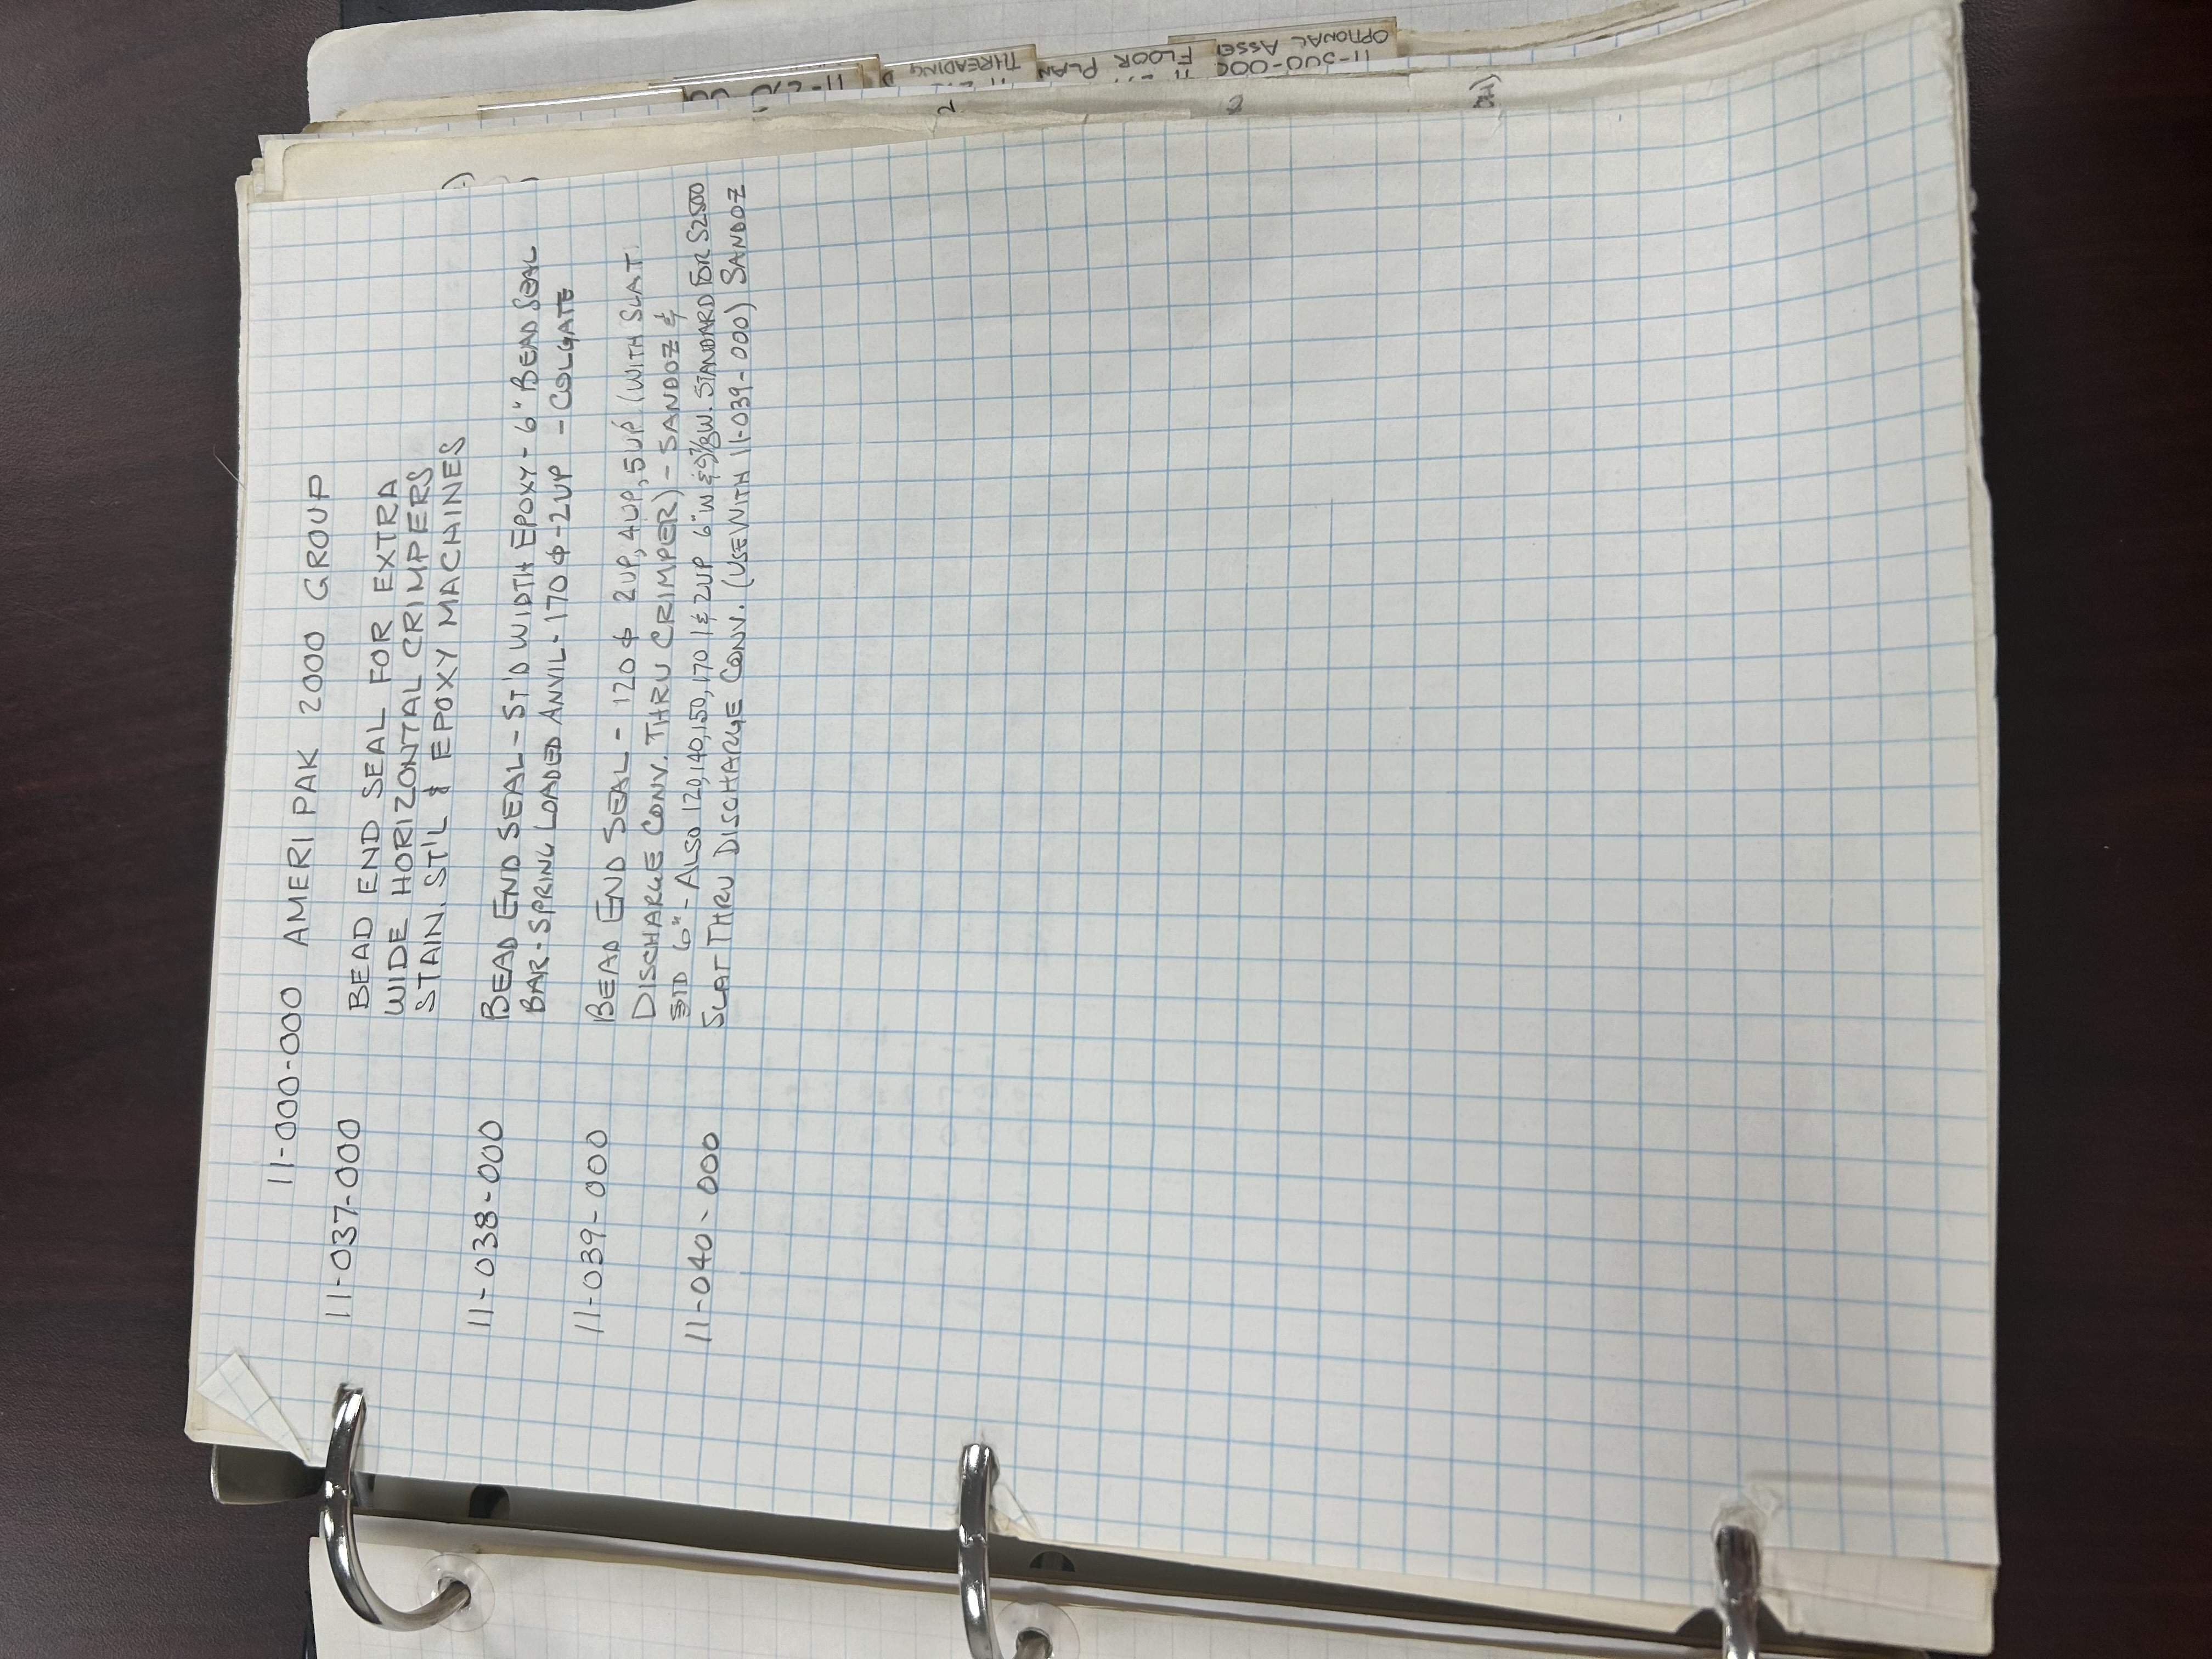 11-000-000 AMERI PAK 2000 GROUP
11-037-000 BEAD END SEAL FOR EXTRA
WIDE HORIZONTAL CRIMPERS
STAIN. ST'L & EPOXY MACHINES
11-038-000 BEAD END SEAL - ST'D WIDTH EPOXY - 6" BEAD SEAL
BAR - SPRING LOADED ANVIL - 170 ⌀ - 2UP - COLGATE
11-039-000 BEAD END SEAL - 120 ⌀ 2UP, 4UP, 5UP (WITH SLAT
DISCHARGE CONV. THRU CRIMPER) - SANDOZ &
STD 6" - ALSO 120, 140, 150, 170 1 & 2UP 6"W & 9⅞W. STANDARD FOR S2500
11-040-000 SLAT THRU DISCHARGE CONV. (USE WITH 11-039-000) SANDOZ
THREADING
FLOOR PLAN
OPTIONAL